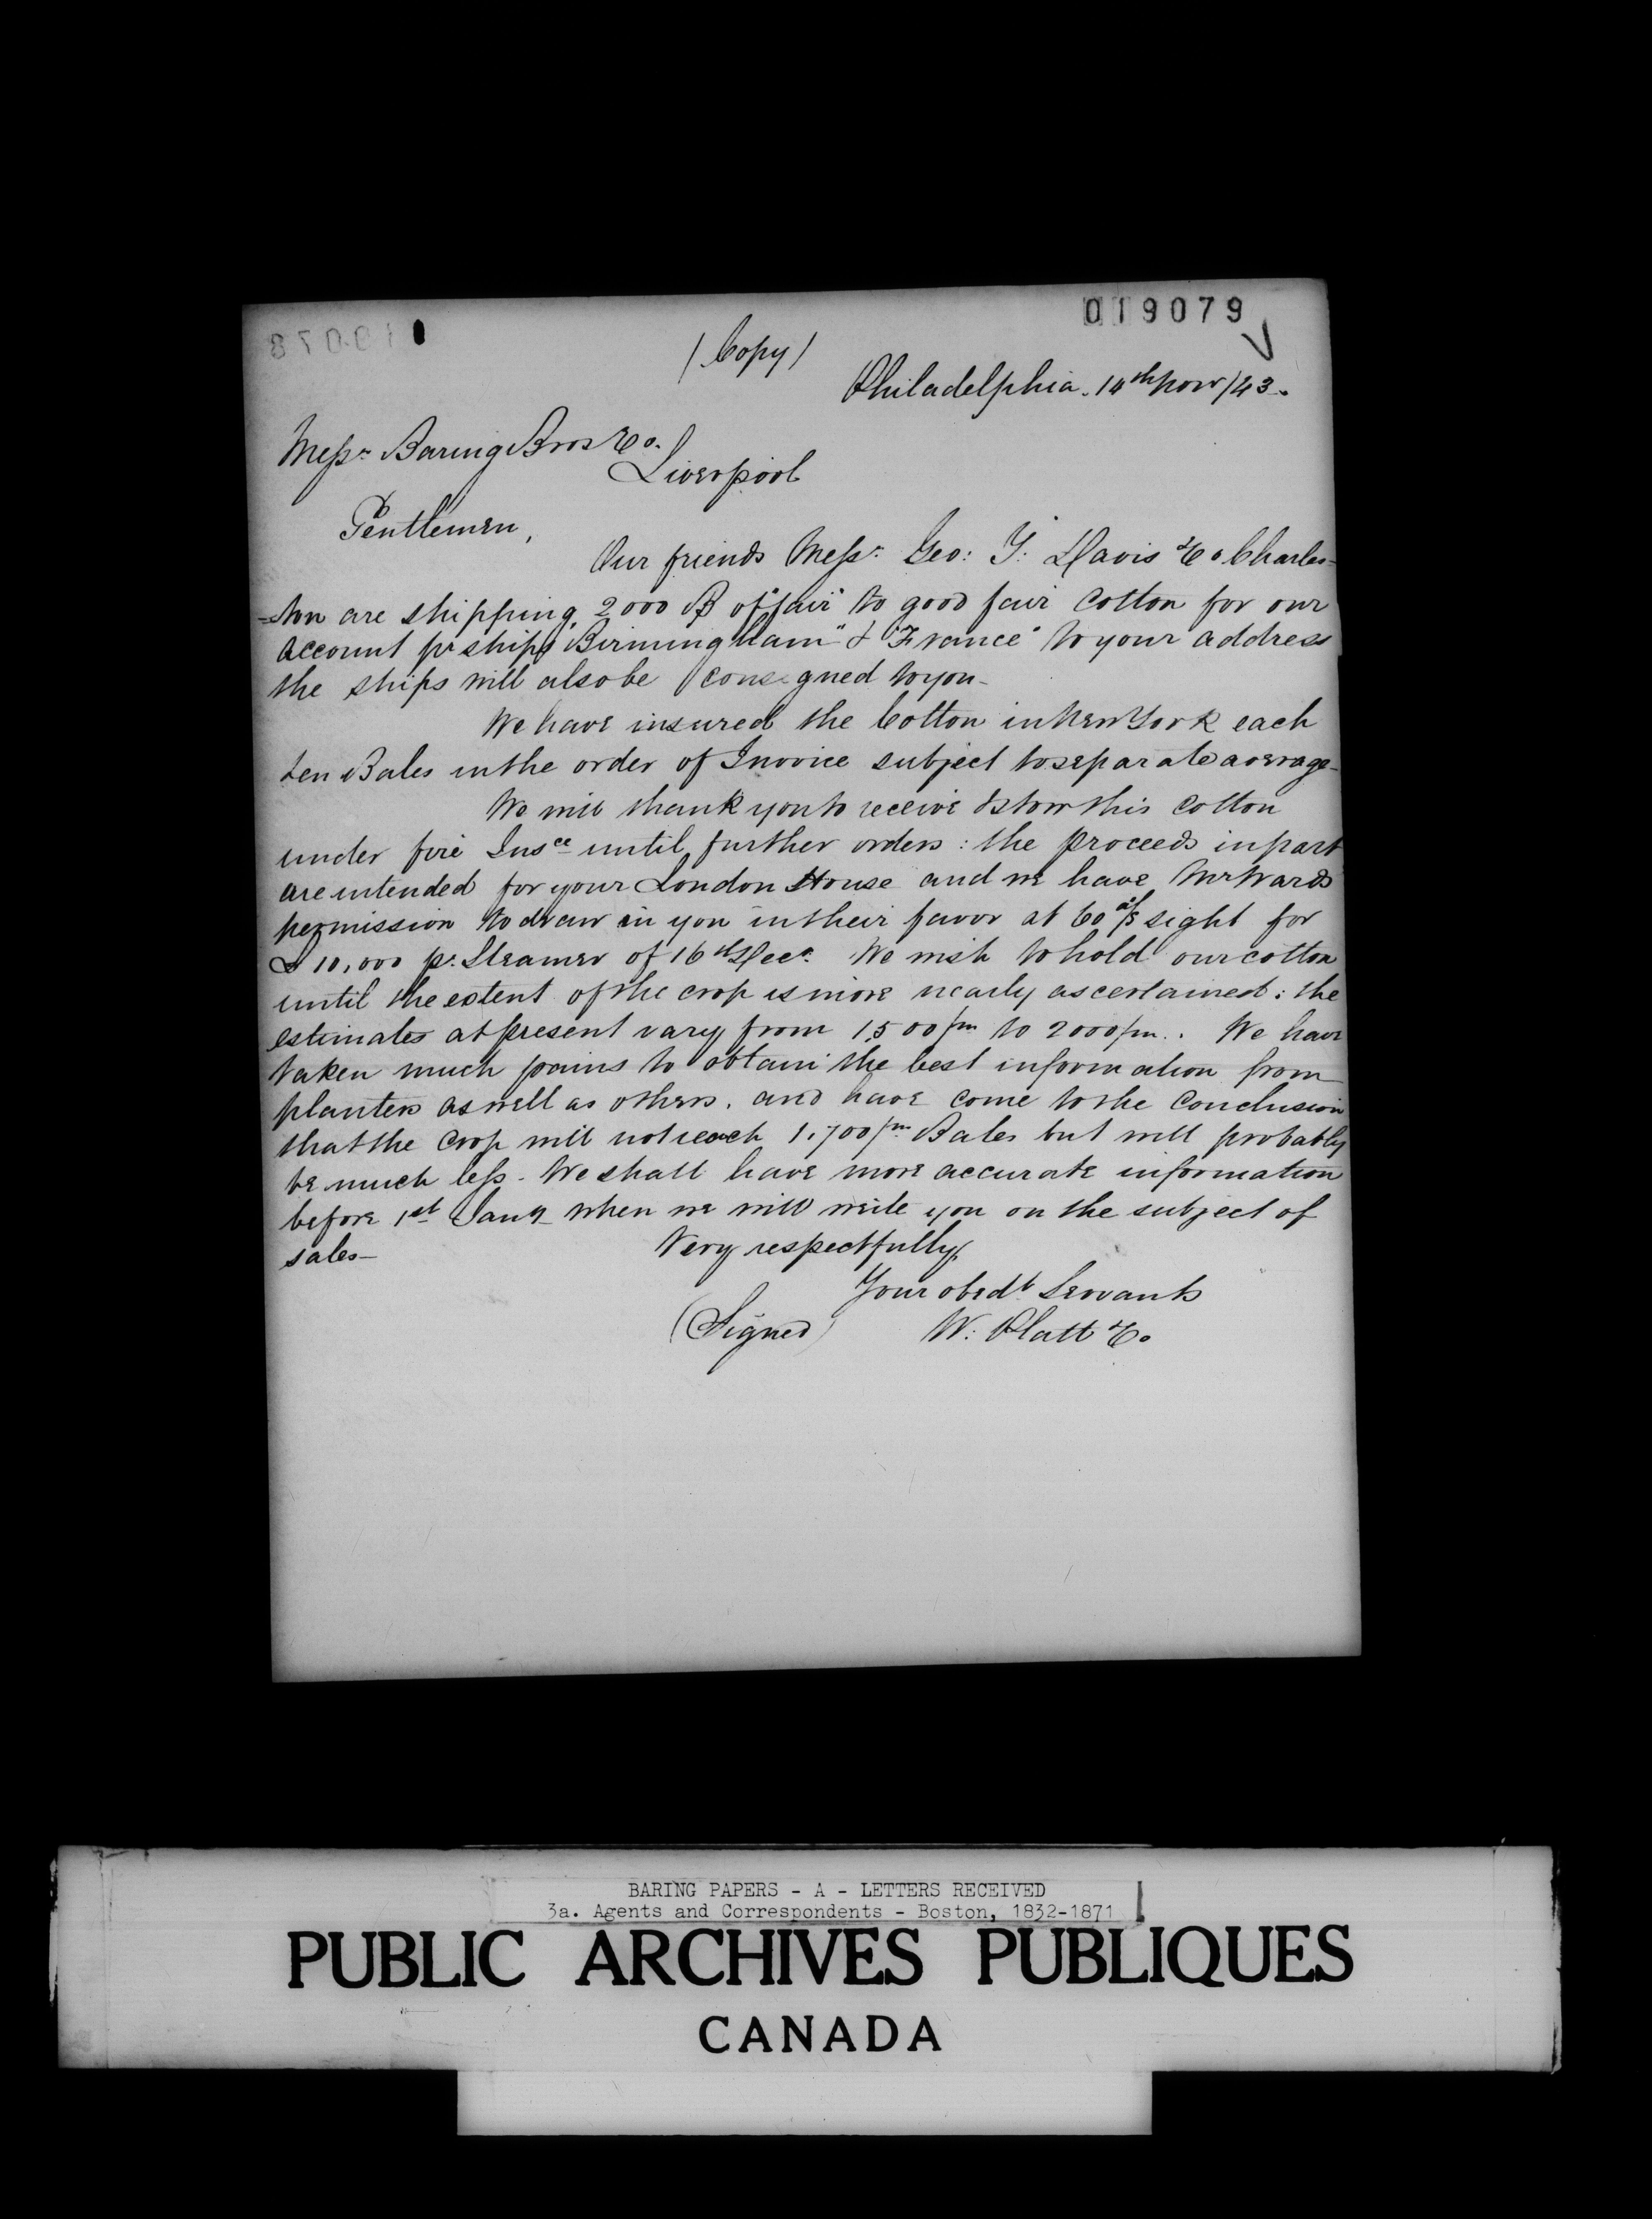 019079
(Copy)
Philadelphia. 14th Novr /43.
Messrs Baring Bros & Co.
Liverpool
Gentlemen,
Our friends Messrs Geo: Y: Davis & Co Charles=
=ton are shipping 2000 B/ of "fair" to good fair Cotton for our
account pr ships "Birmingham" & "France" to your address
the ships will also be consigned to you -
We have insured the Cotton in New York each
ten Bales in the order of Invoice subject to separate average -
We will thank you to receive & store this Cotton
under fire Insce until further orders : the proceeds in part
are intended for your London House and we have Mr Wards
permission to draw on you in their favor at 60 d/s sight for
£10,000 pr. Steamer of 16th Decr. We wish to hold our cotton
until the extent of the crop is more nearly ascertained : the
estimates at present vary from 1,500/m to 2000/m. We have
taken much pains to obtain the best information from
planters as well as others, and have come to the Conclusion
that the Crop will not reach 1,700/m Bales but will probably
be much less - We shall have more accurate information
before 1st Jany when we will write you on the subject of
sales - Very respectfully
Your obedt Servants
(Signed) W: Platt & Co
BARING PAPERS - A - LETTERS RECEIVED
3a. Agents and Correspondents - Boston, 1832-1871
PUBLIC ARCHIVES PUBLIQUES
CANADA